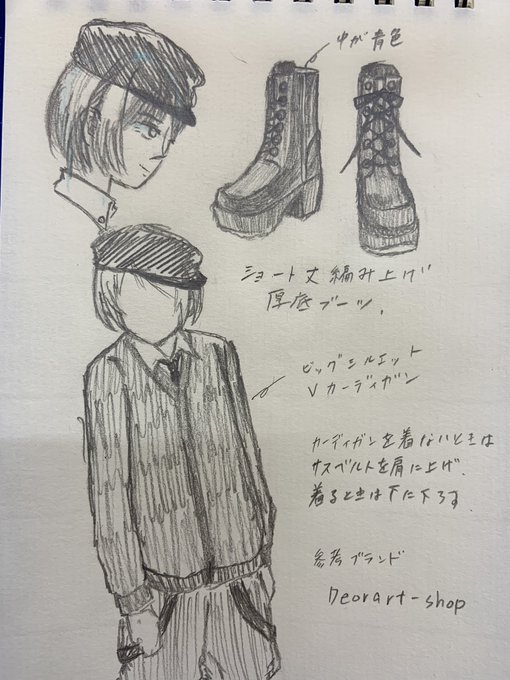 中が青色
ショート丈編み上げ
厚底ブーツ.
ビッグシルエット
Vカーディガン
カーディガンを着ないときは
サスベルトを肩に上げ.
着るときは下に下ろす.
参考ブランド
Deorart-shop